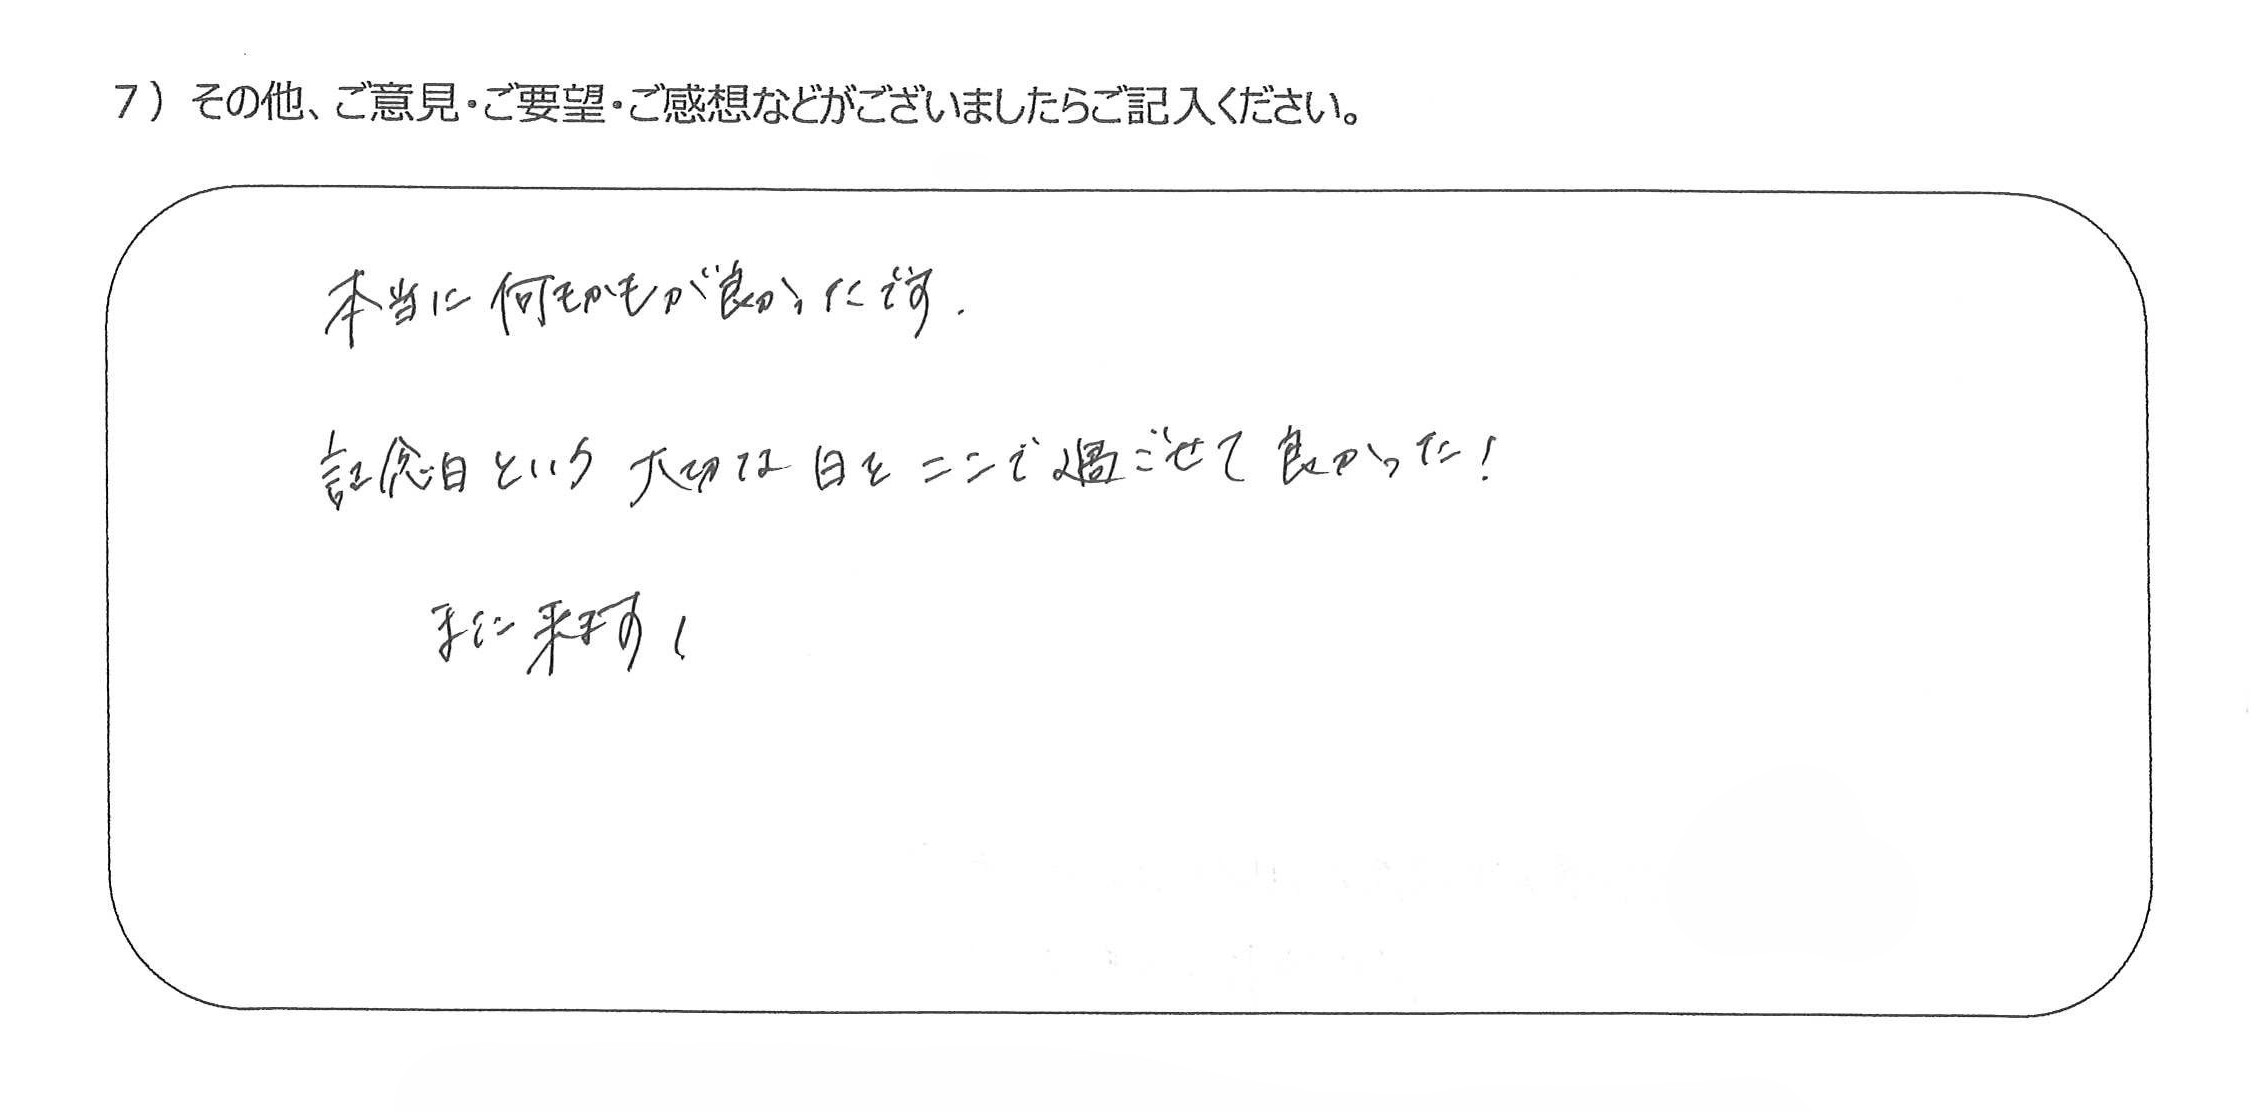 7）その他、ご意見・ご要望・ご感想などがございましたらご記入ください。
本当に何もかもが良かったです.
記念日という大切な日をここで過ごせて良かった!
また来ます!